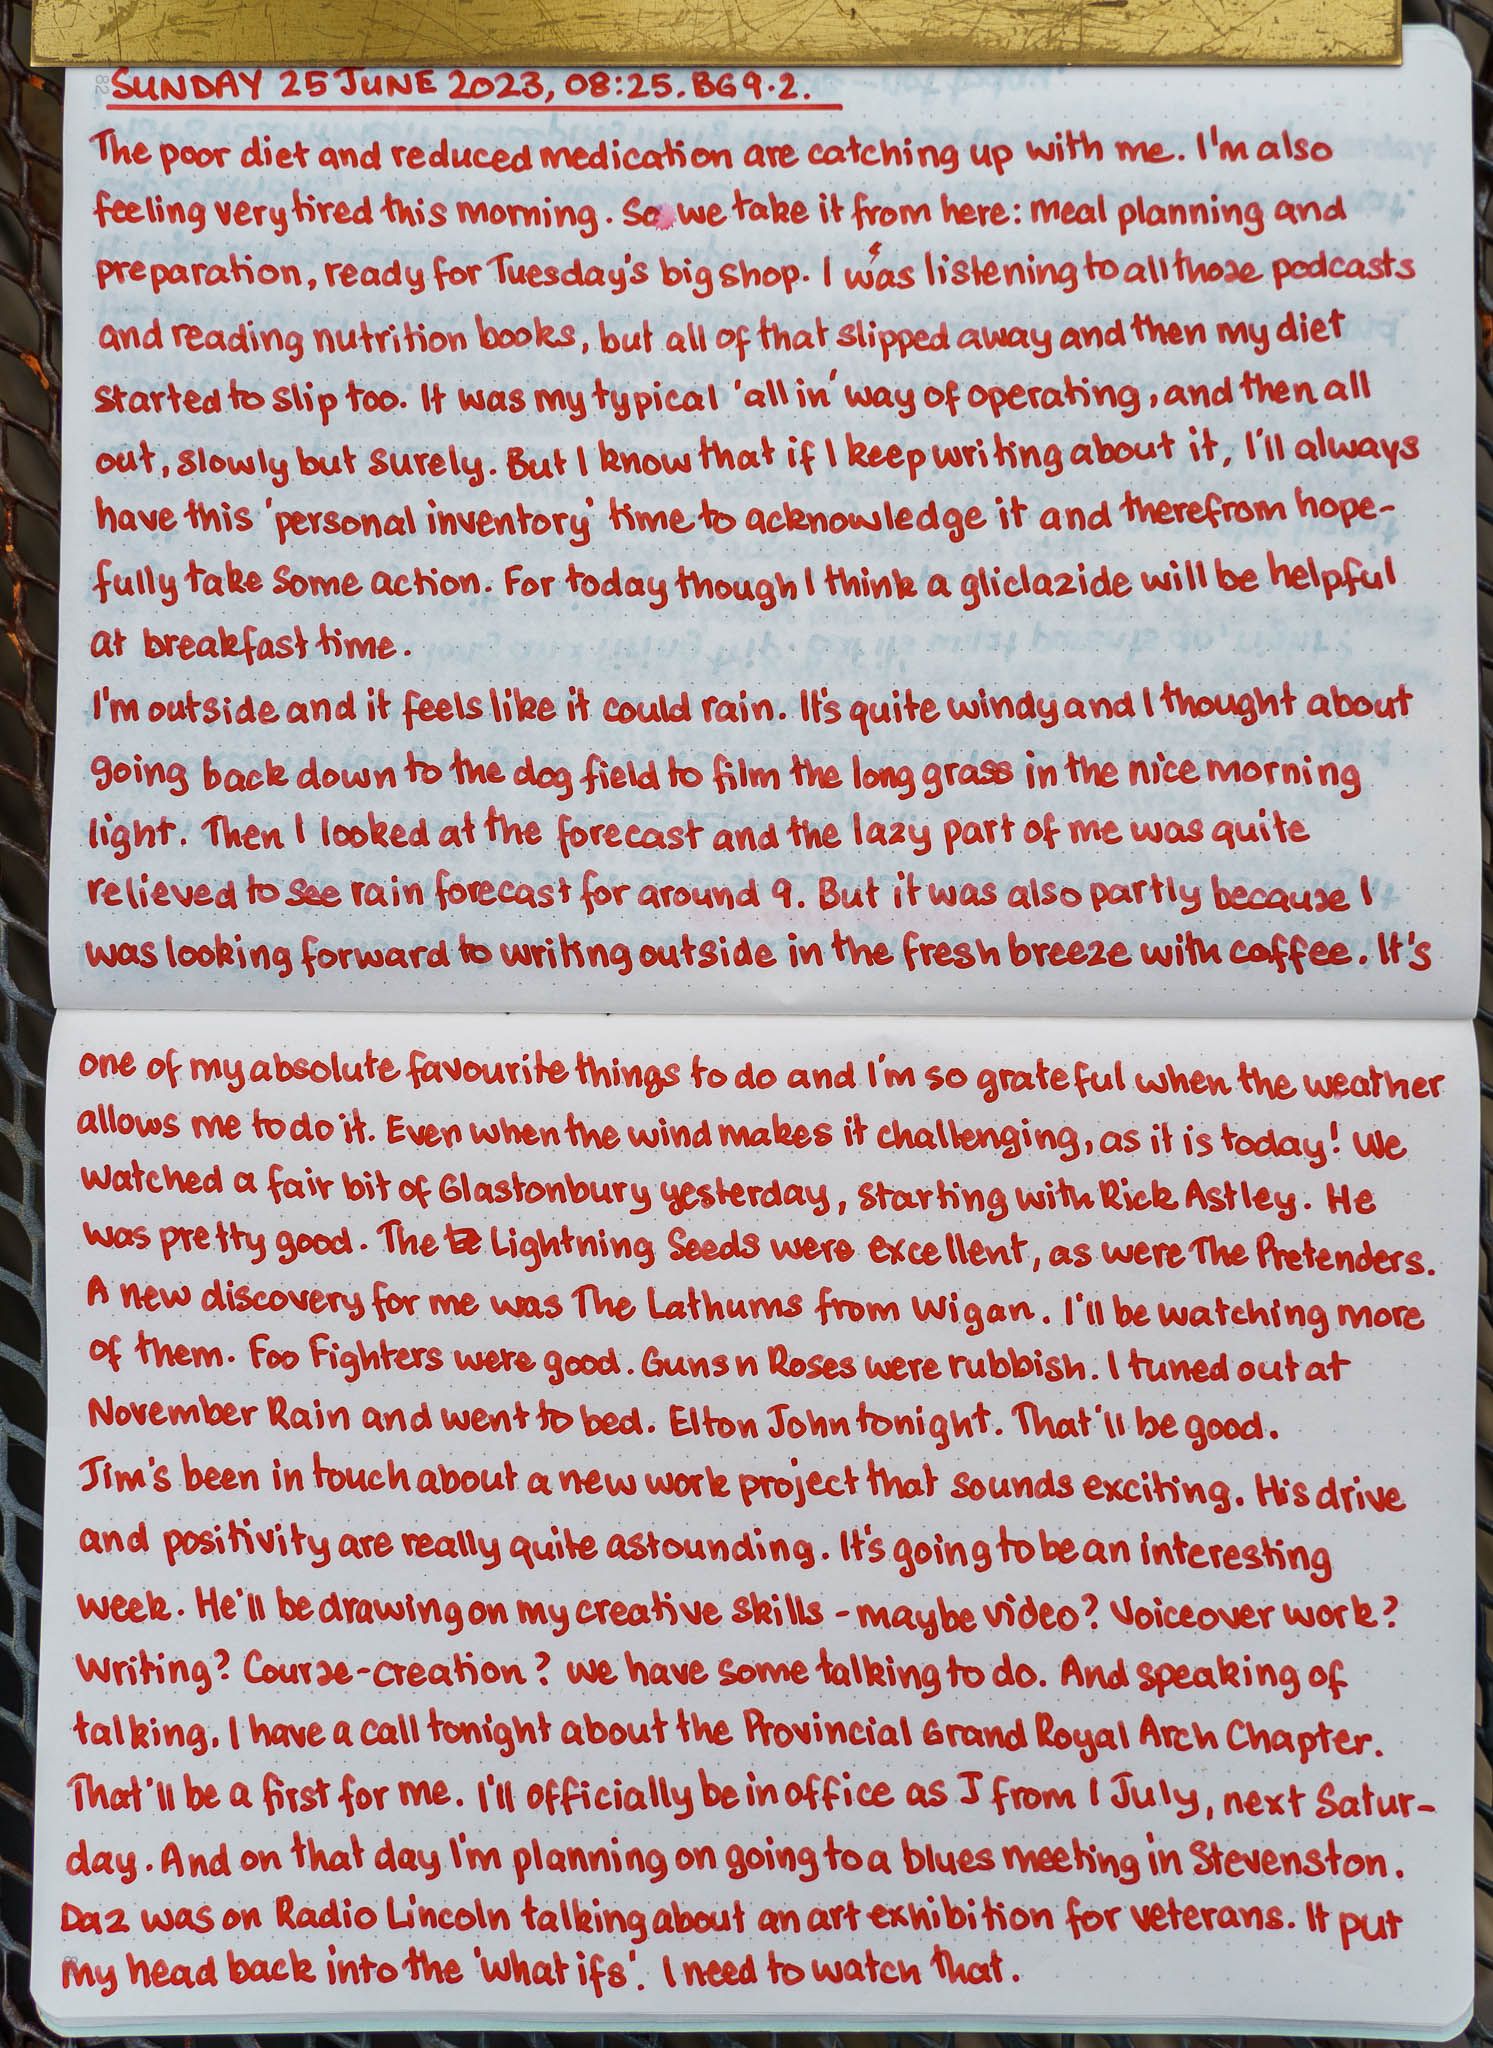 SUNDAY 25 JUNE 2023, 08:25. BG 9.2.
The poor diet and reduced medication are catching up with me. I'm also
feeling very tired this morning. So we take it from here: meal planning and
preparation, ready for Tuesday's big shop. I was listening to all those podcasts
and reading nutrition books, but all of that slipped away and then my diet
started to slip too. It was my typical 'all in' way of operating, and then all
out, slowly but surely. But I know that if I keep writing about it, I'll always
have this 'personal inventory' time to acknowledge it and therefrom hope-
fully take some action. For today though I think a gliclazide will be helpful
at breakfast time.
I'm outside and it feels like it could rain. It's quite windy and I thought about
going back down to the dog field to film the long grass in the nice morning
light. Then I looked at the forecast and the lazy part of me was quite
relieved to see rain forecast for around 9. But it was also partly because I
was looking forward to writing outside in the fresh breeze with coffee. It's
one of my absolute favourite things to do and I'm so grateful when the weather
allows me to do it. Even when the wind makes it challenging, as it is today! We
watched a fair bit of Glastonbury yesterday, starting with Rick Astley. He
was pretty good. The Lightning Seeds were excellent, as were The Pretenders.
A new discovery for me was The Lathums from Wigan. I'll be watching more
of them. Foo Fighters were good. Guns n Roses were rubbish. I tuned out at
November Rain and went to bed. Elton John tonight. That'll be good.
Jim's been in touch about a new work project that sounds exciting. His drive
and positivity are really quite astounding. It's going to be an interesting
week. He'll be drawing on my creative skills - maybe video? Voiceover work?
Writing? Course-creation? We have some talking to do. And speaking of
talking, I have a call tonight about the Provincial Grand Royal Arch Chapter.
That'll be a first for me. I'll officially be in office as J from 1 July, next Satur-
day. And on that day I'm planning on going to a blues meeting in Stevenston.
Daz was on Radio Lincoln talking about an art exhibition for veterans. It put
my head back into the 'what ifs'. I need to watch that.